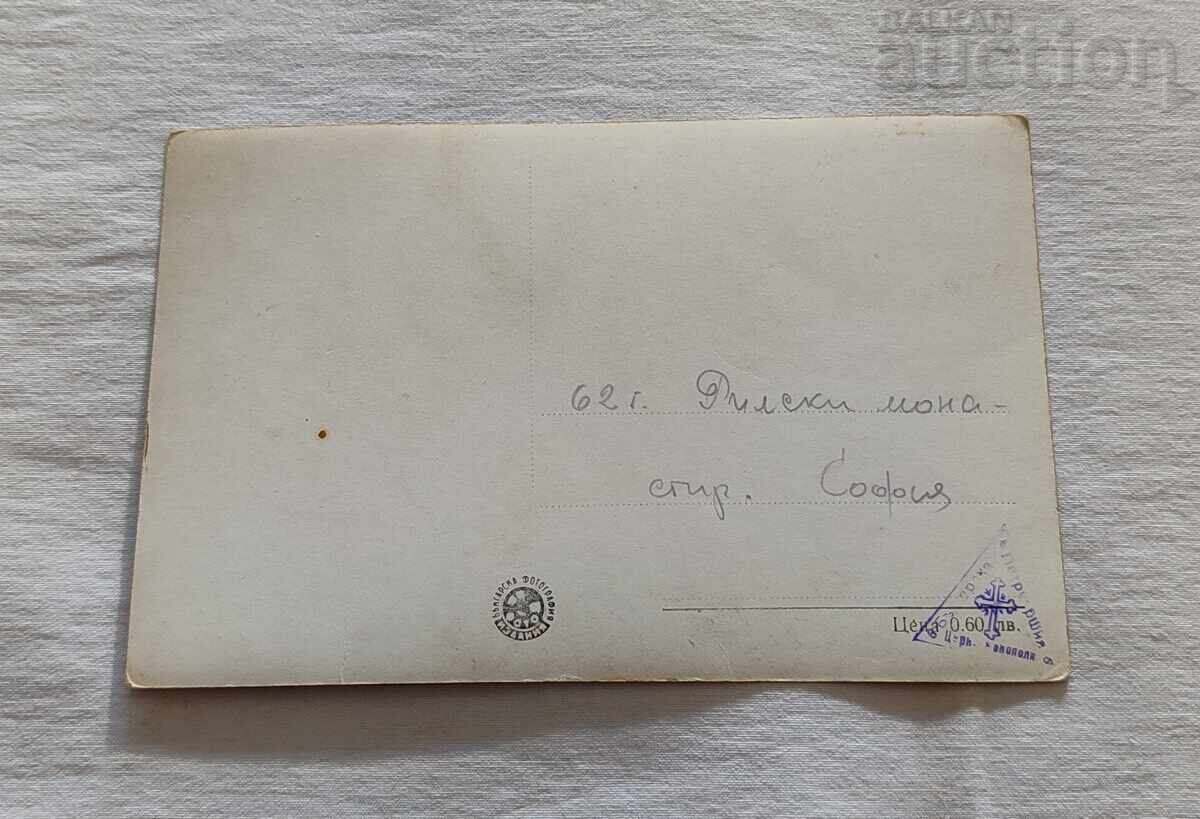 BALKAN
auction
62 г. Рилски мона-
стир. София
БЪЛГАРСКА ФОТОГРАФИЯ
ИЗДАНИЯ
Цена 0.60 лв.
Църк.